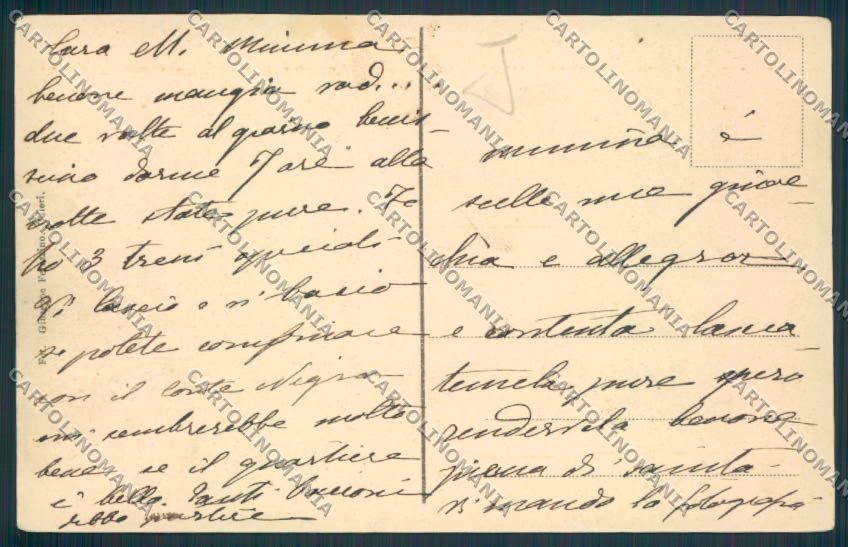 Cara M. Mimma
benone mangia rad...
due volte al giorno benis-
simo dorme 7 ore alla
notte state pure. Io
ho 3 treni speciali
Vi lascio e vi bacio
se potete combinare
con il conte Nigra
mi sembrerebbe molto
bene se il quartiere
è bello tanti bacioni
debbo partire
mimma è
sulle mie ginoc-
chia e allegra
e contenta lascia-
temela pure spero
rendervela benone
piena di sanità.
vi mando la fotografia
Giuseppe
CARTOLINOMANIA